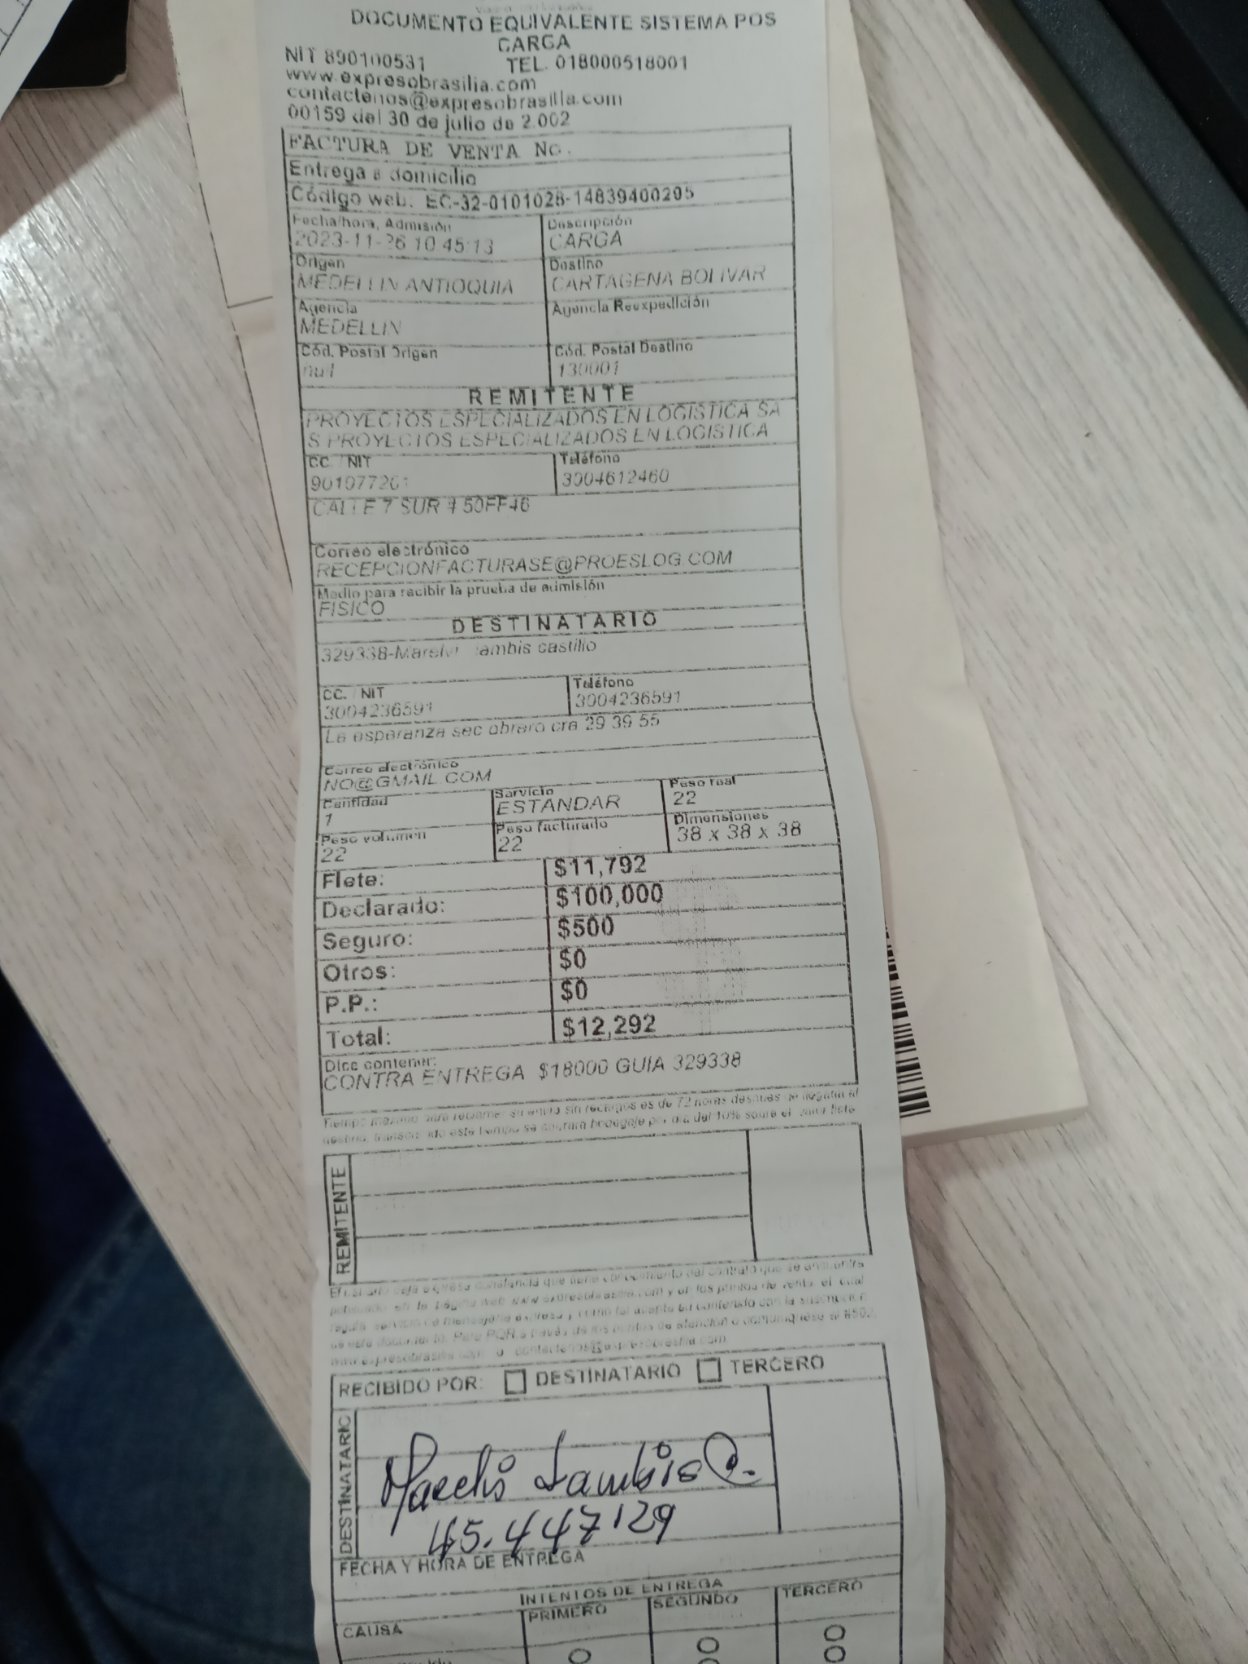 DOCUMENTO EQUIVALENTE SISTEMA POS
CARGA
NIT 890100531 TEL. 018000518001
www.expresobrasilia.com
contactenos@expresobrasilia.com
00159 del 30 de julio de 2.002
FACTURA DE VENTA No.
Entrega a domicilio
Código web: EC-32-0101028-14839400295
Fecha/hora, Admisión Descripción
2023-11-26 10:45:13 CARGA
Origen Destino
MEDELLIN ANTIOQUIA CARTAGENA BOLIVAR
Agencia Agencia Reexpedición
MEDELLIN
Cód. Postal Origen Cód. Postal Destino
null 130001
REMITENTE
PROYECTOS ESPECIALIZADOS EN LOGISTICA SA
S PROYECTOS ESPECIALIZADOS EN LOGISTICA
CC. / NIT Teléfono
901077261 3004612460
CALLE 7 SUR # 50FF46
Correo electrónico
RECEPCIONFACTURASE@PROESLOG.COM
Medio para recibir la prueba de admisión
FISICO
DESTINATARIO
329338- castillo
CC. / NIT Teléfono
3004236591 3004236591
La esperanza sec obrero cra 29 39 55
Correo electrónico
NO@GMAIL.COM
Cantidad Servicio Peso real
1 ESTANDAR 22
Peso volumen Peso facturado Dimensiones
22 22 38 x 38 x 38
Flete: $11,792
Declarado: $100,000
Seguro: $500
Otros: $0
P.P.: $0
Total: $12,292
Dice contener:
CONTRA ENTREGA $18000 GUIA 329338
REMITENTE
RECIBIDO POR: DESTINATARIO TERCERO
DESTINATARIO
45.447129
FECHA Y HORA DE ENTREGA
INTENTOS DE ENTREGA
CAUSA PRIMERO SEGUNDO TERCERO